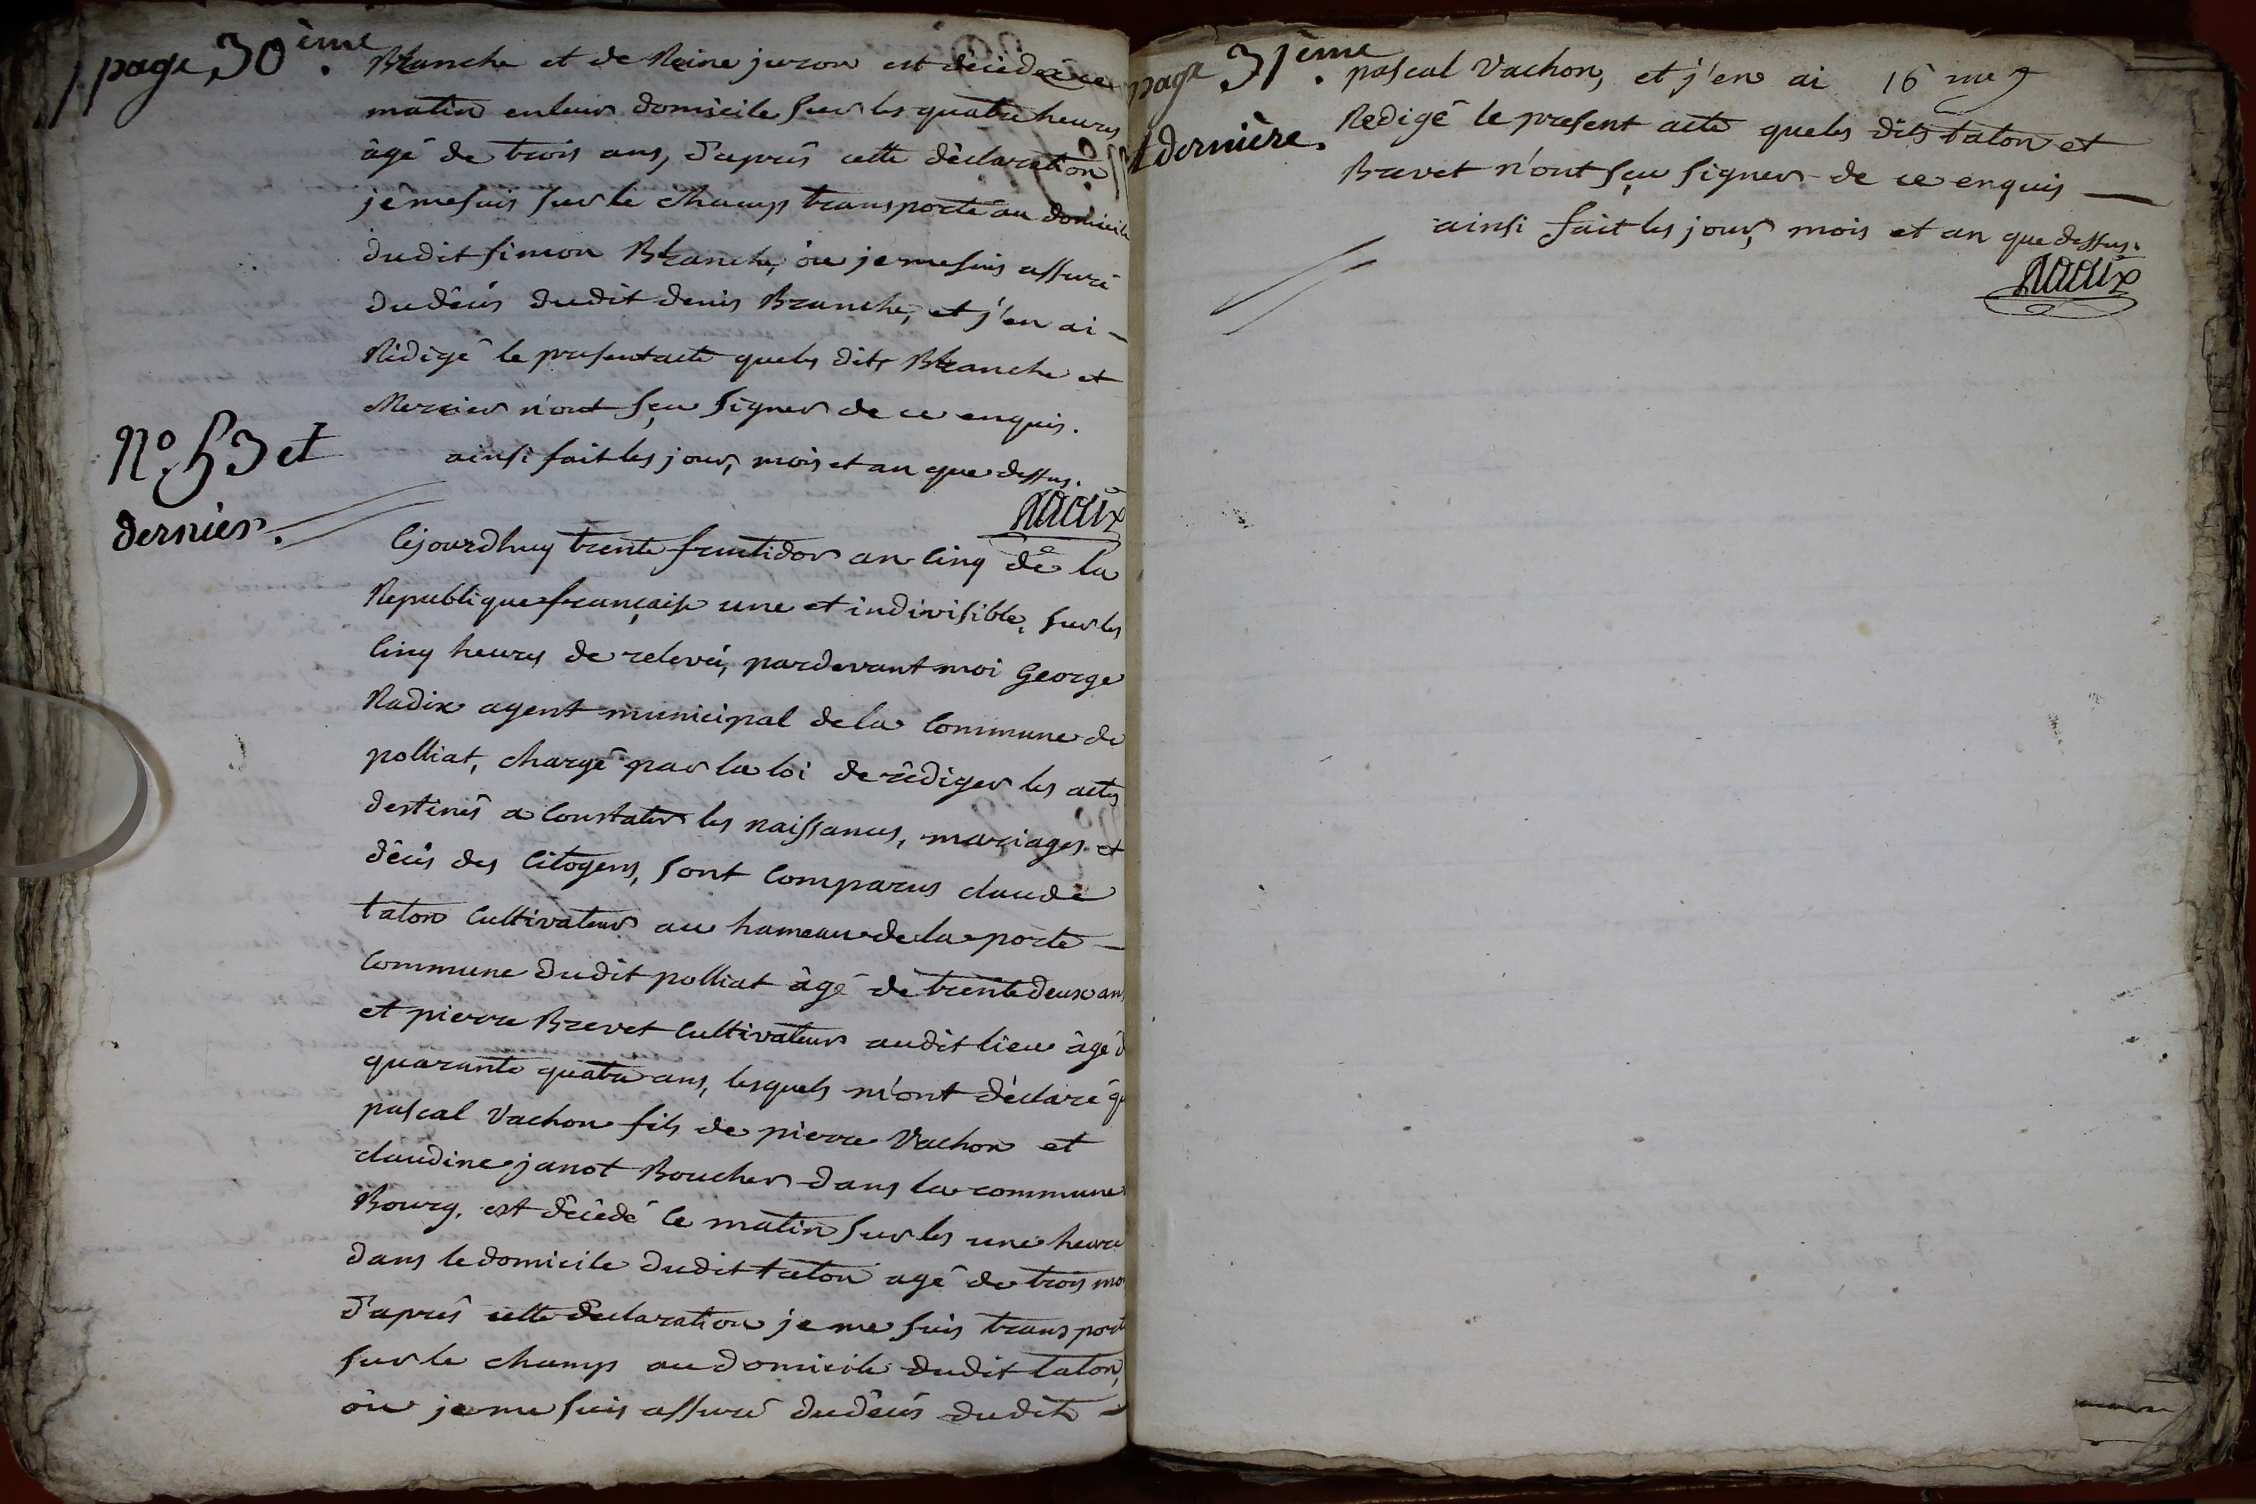 page 30ème.
Branche et de Reine juron est décédé ce
matin en leur domicile sur les quatre heures
âgé de trois ans, d'après cette déclaration
je me suis sur le champ transporté au domicile
dudit simon Branche, où je me suis assuré
du décès dudit denis Branche, et j'en ai
Rédigé le present acte que les dits Branche et
Mercier n'ont sçu signer de ce enquis.
ainsi fait les jour, mois et an que dessus.
Radix
No. 53 et
dernier.
Cejourdhuy trente fructidor an Cinq de la
Republique française une et indivisible, sur les
Cinq heures de relevé, pardevant moi George
Radix agent municipal de la Commune de
polliat, chargé par la loi de rédiger les actes
destinés a Constater les naissances, mariages et
décès des Citoyens, sont Comparus claude
talon Cultivateur au hameau de la porte
Commune dudit polliat âgé de trente deux ans
et pierre Brevet Cultivateur audit lieu âgé d
quarante quatre ans, lesquels m'ont déclaré q
pascal Vachon fils de pierre Vachon et
claudine janot Boucher dans la commune
Bourg, est décédé ce matin sur les une heure
dans le domicile dudit talon agé de trois mo
d'après cette déclaration je me suis transport
sur le champ au domicile dudit talon,
où je me suis assuré du décès dudit
page 31ème.
et dernière.
pascal Vachon, et j'en ai 16 me
Redigé le present acte que les dits talon et
Brevet n'ont sçu signer de ce enquis
ainsi fait les jour, mois et an que dessus.
Radix